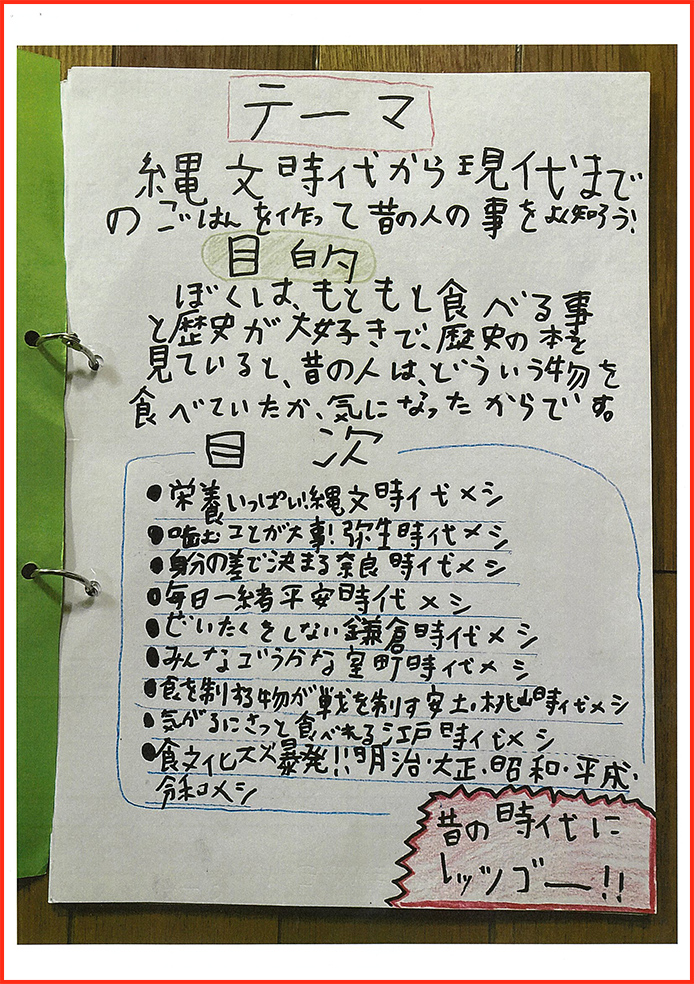 テーマ
縄文時代から現代まで
のごはんを作って昔の人の事をよく知ろう!
目的
ぼくは、もともと食べる事
と歴史が大好きで、歴史の本を
見ていると、昔の人は、どういう物を
食べていたか、気になったからです。
目次
●栄養いっぱい!縄文時代メシ
●噛むことが大事!弥生時代メシ
●身分の差で決まる奈良時代メシ
●毎日一緒平安時代メシ
●ぜいたくをしない鎌倉時代メシ
●みんなごうかな室町時代メシ
●食を制する物が戦を制す安土・桃山時代メシ
●気がるにさっと食べれる江戸時代メシ
●食文化大爆発!!明治・大正・昭和・平成・
令和メシ
昔の時代に
レッツゴー!!